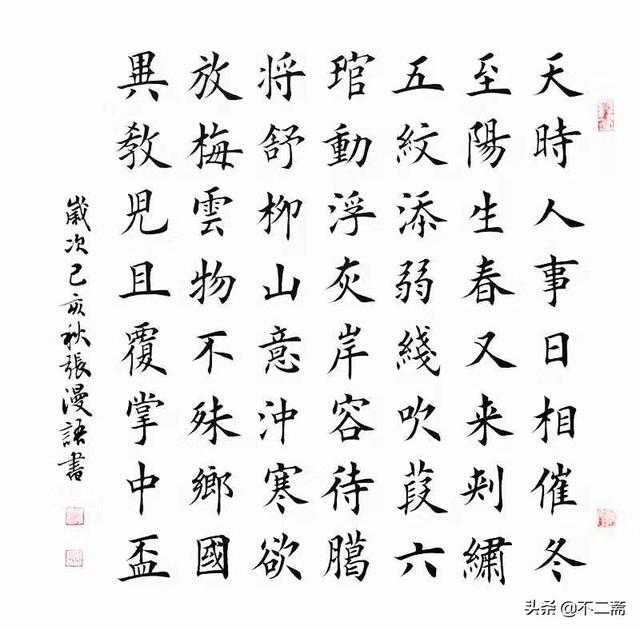 天時人事日相催冬
至陽生春又来刾繡
五紋添弱綫吹葭六
琯動浮灰岸容待臈
将舒柳山意沖寒欲
放梅雲物不殊鄉國
異教児且覆掌中盃
歲次己亥秋張漫語書
头条 @不二斋